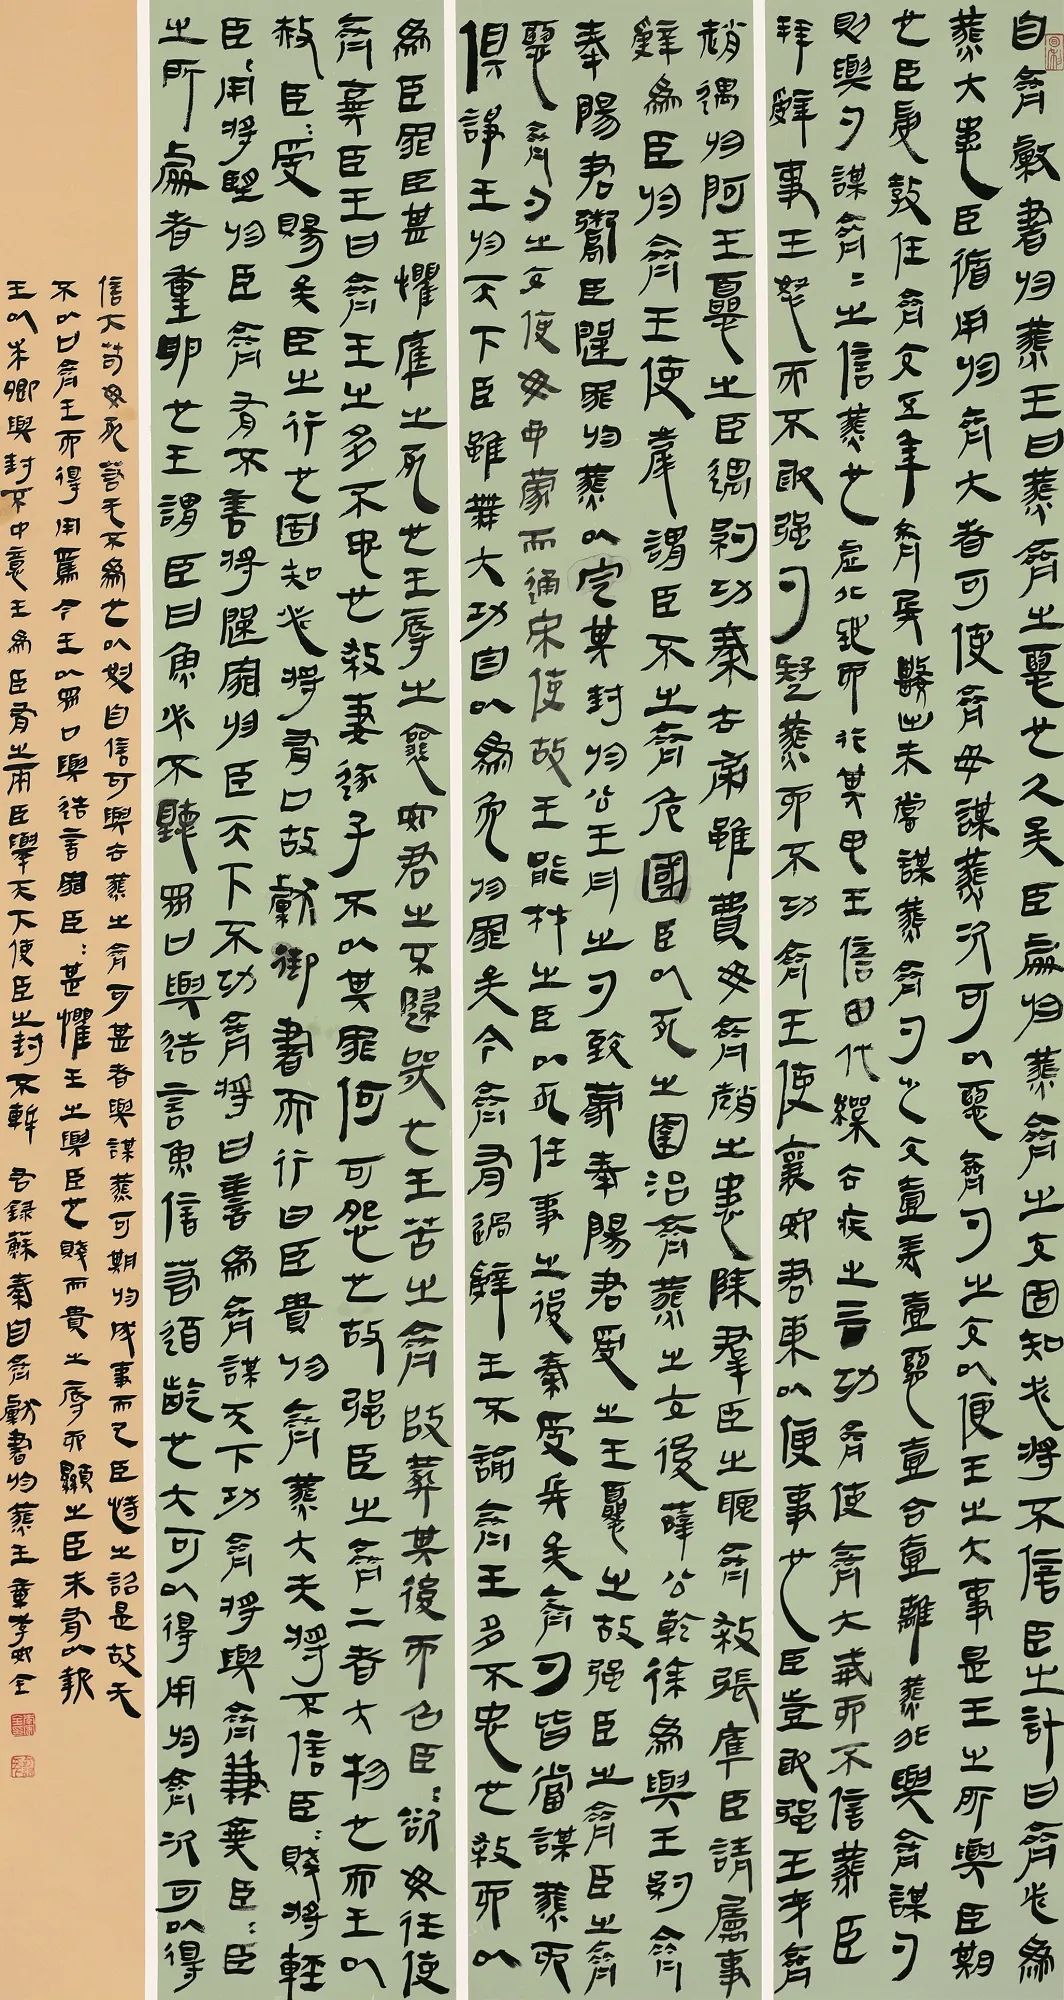 自齊獻書於燕王曰燕齊之惡也久矣臣處於燕齊之交固知必將不信臣之計曰齊必為
燕大患臣循用於齊大者可使齊毋謀燕次可以惡齊勺之交以便王之大事是王之所與臣期
也臣受教任齊交五年齊兵數出未嘗謀燕齊勺之交壹美壹惡壹合壹離燕非與齊謀勺
則與勺謀齊〻之信燕也虛北地而行其甲王信田代繰去疾之言功齊使齊大戒而不信燕臣
拜辭事王怒而不敢強勺疑燕而不功齊王使襄安君東以便事也臣豈敢強王哉齊
趙遇於阿王憂之臣遇約功秦去帝雖費毋齊趙之患除羣臣之聭齊殺張庫臣請屬事
辭為臣於齊王使慶謂臣不之齊危國臣以死之圍治齊燕之交後薛公乾徐為與王約齊
奉陽君鬻臣歸罪於燕以定其封於公玉丹之勺致蒙奉陽君受之王憂之故強臣之齊臣之齊
惡齊勺之交使毋予蒙而通宋使故王能材之臣以死任事之後秦受兵矣齊勺皆嘗謀燕而
俱諍王於天下臣雖無大功自以為免於罪矣今齊有過辭王不諭齊王多不忠也殺而以
為臣罪臣甚懼庫之死也王辱之襄安君之不歸哭也王苦之齊改葬其後而召臣〻欲毋往使
齊棄臣王曰齊王之多不忠也殺妻逐子不以其罪何可怨也故強臣之齊二者大物也而王以
赦臣〻受賜矣臣之行也固知必將有口故獻御書而行曰臣貴於齊燕大夫將不信臣〻賤將輕
臣〻用將望於臣齊有不善將歸罪於臣天下不功齊將曰善為齊謀天下功齊將與齊兼棄臣〻臣
之所處者重卵也王謂臣曰魚必不聽眾口與造言魚信若猶齕也大可以得用於齊次可以得
信下苟毋死若无不為也以奴自信可與去燕之齊可甚者與謀燕可期於成事而已臣恃之詔是故无
不以口齊王而得用焉今王以眾口與造言罪臣〻甚懼王之與臣也賤而貴之辱而顯之臣未有以報
王以求卿與封不中意王為臣有之兩臣舉天下使臣之封不慚 右錄蘇秦自齊獻書於燕王章